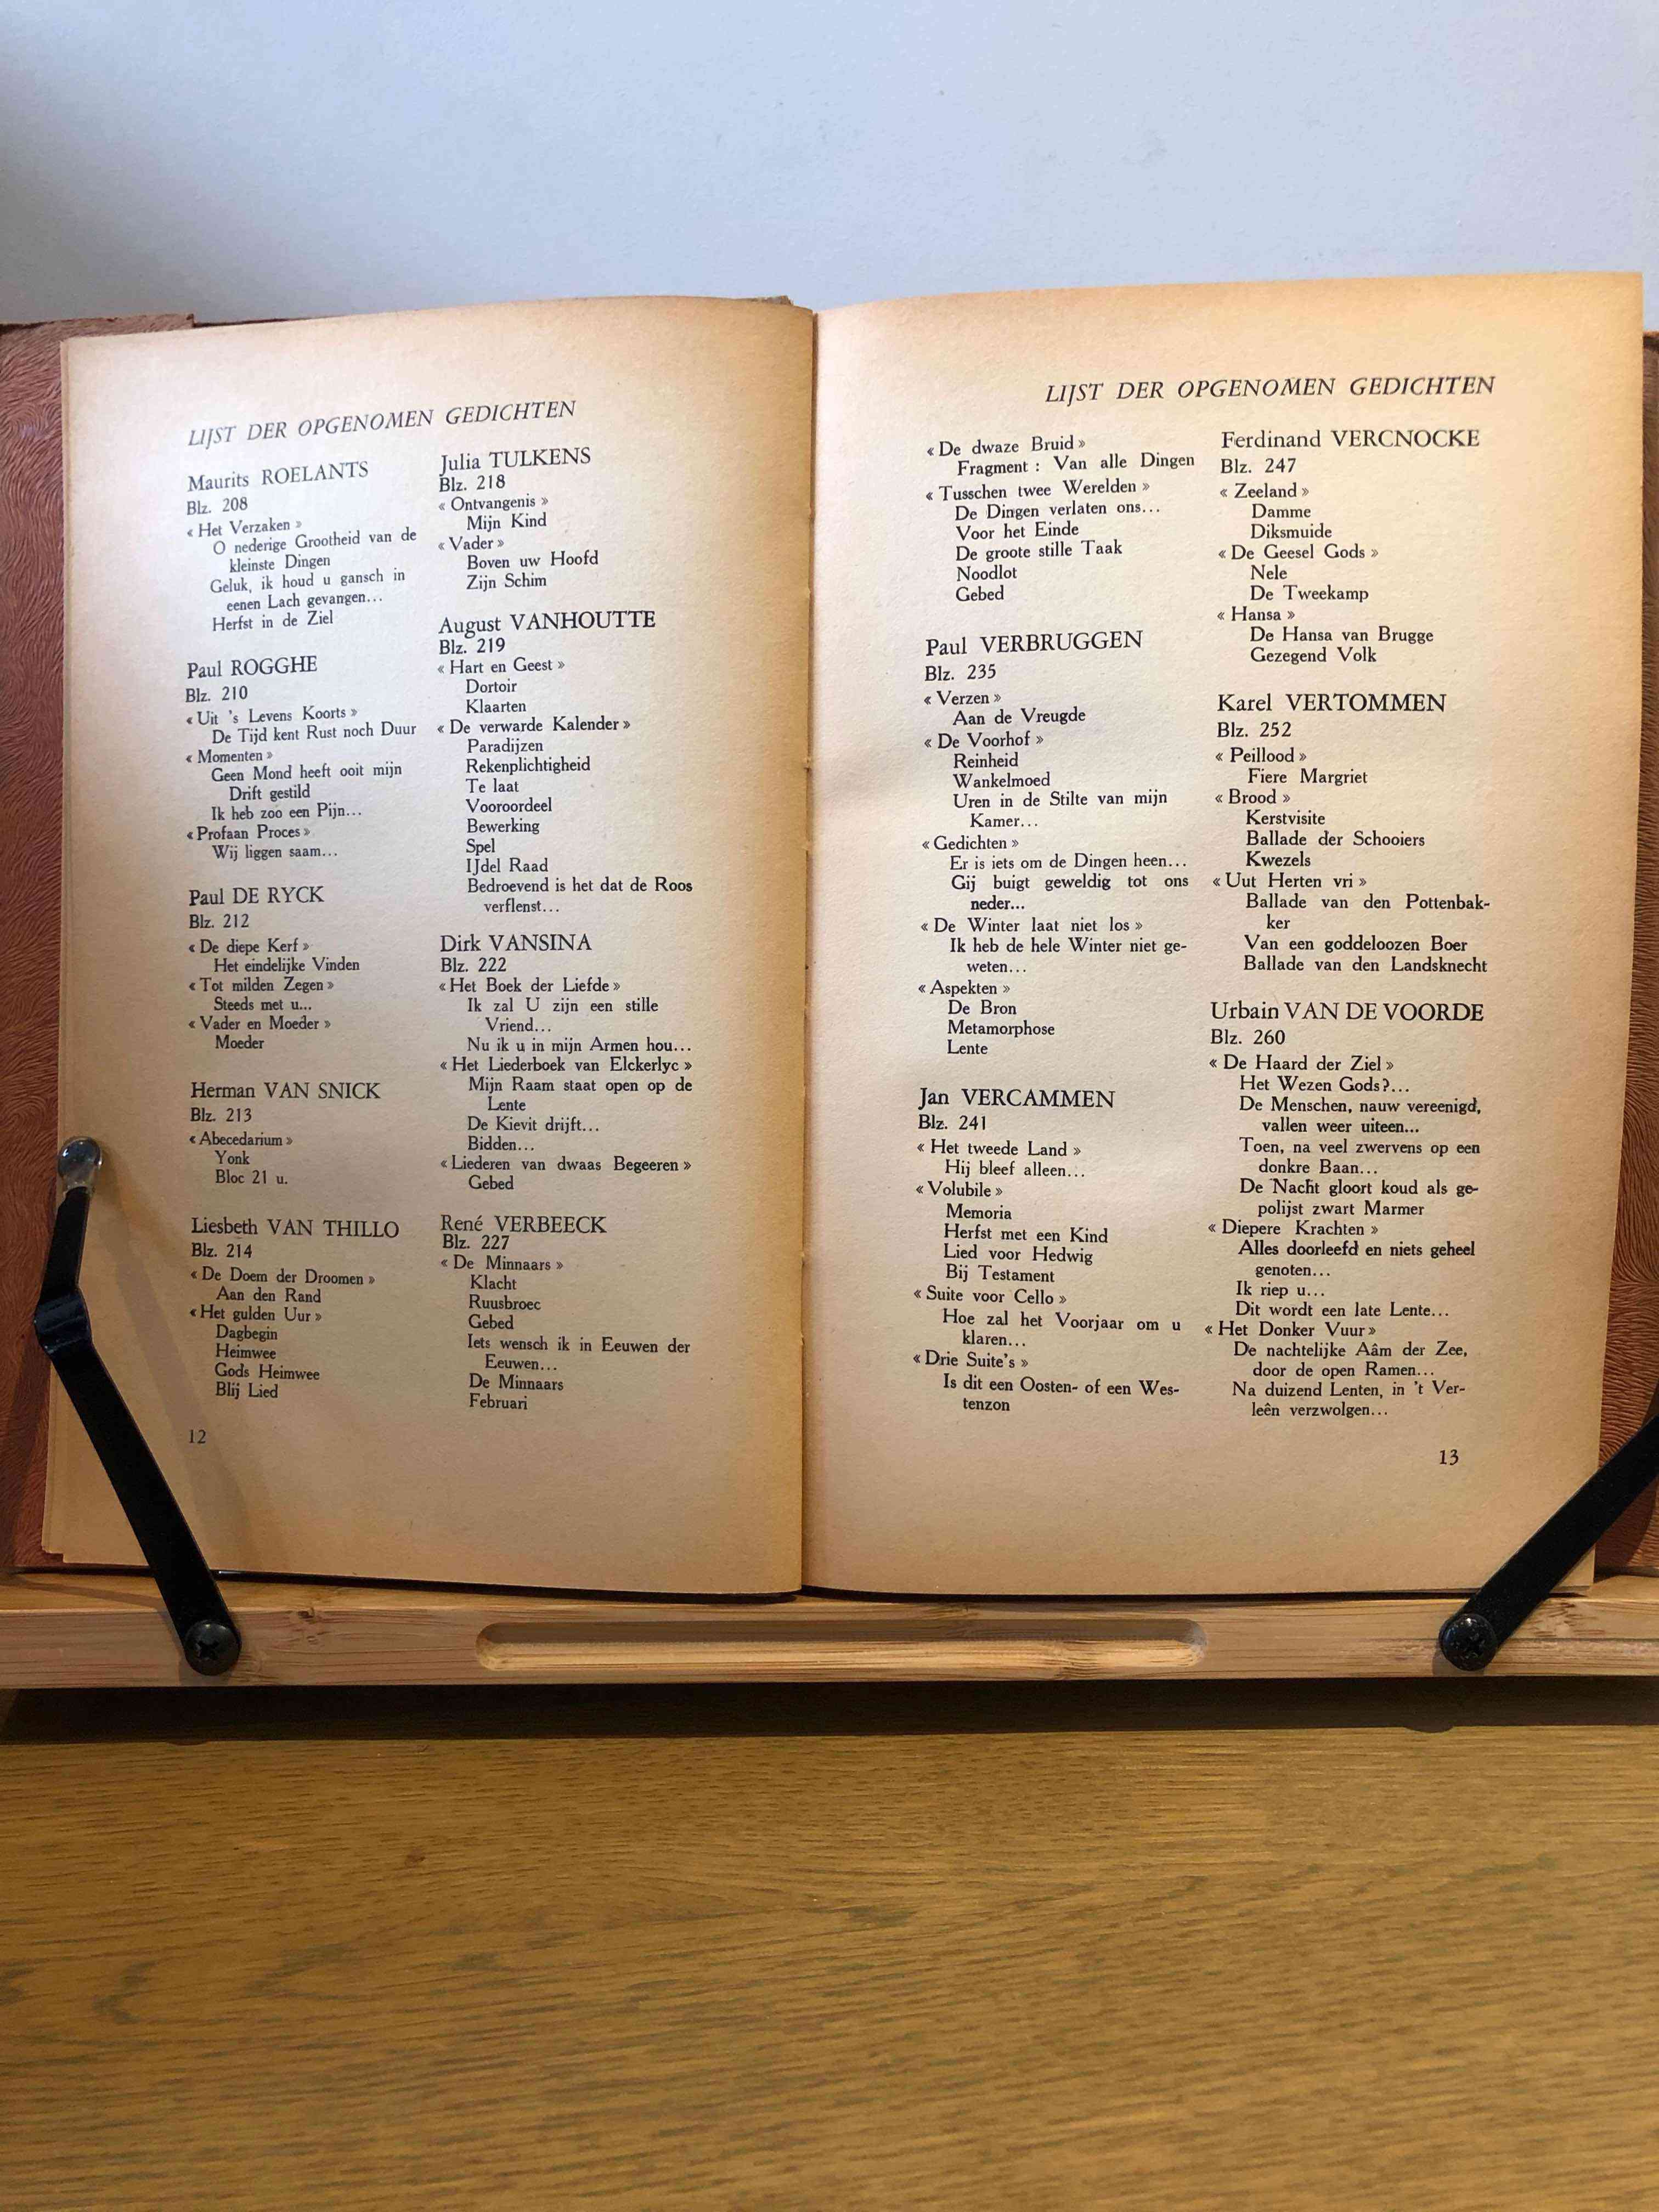 LIJST DER OPGENOMEN GEDICHTEN
Maurits ROELANTS
Blz. 208
« Het Verzaken »
O nederige Grootheid van de
kleinste Dingen
Geluk, ik houd u gansch in
eenen Lach gevangen...
Herfst in de Ziel
Paul ROGGHE
Blz. 210
« Uit 's Levens Koorts »
De Tijd kent Rust noch Duur
« Momenten »
Geen Mond heeft ooit mijn
Drift gestild
Ik heb zoo een Pijn...
« Profaan Proces »
Wij liggen saam...
Paul DE RYCK
Blz. 212
« De diepe Kerf »
Het eindelijke Vinden
« Tot milden Zegen »
Steeds met u...
« Vader en Moeder »
Moeder
Herman VAN SNICK
Blz. 213
« Abecedarium »
Yonk
Bloc 21 u.
Liesbeth VAN THILLO
Blz. 214
« De Doem der Droomen »
Aan den Rand
« Het gulden Uur »
Dagbegin
Heimwee
Gods Heimwee
Blij Lied
12
Julia TULKENS
Blz. 218
« Ontvangenis »
Mijn Kind
« Vader »
Boven uw Hoofd
Zijn Schim
August VANHOUTTE
Blz. 219
« Hart en Geest »
Dortoir
Klaarten
« De verwarde Kalender »
Paradijzen
Rekenplichtigheid
Te laat
Vooroordeel
Bewerking
Spel
IJdel Raad
Bedroevend is het dat de Roos
verflenst...
Dirk VANSINA
Blz. 222
« Het Boek der Liefde »
Ik zal U zijn een stille
Vriend...
Nu ik u in mijn Armen hou...
« Het Liederboek van Elckerlyc »
Mijn Raam staat open op de
Lente
De Kievit drijft...
Bidden...
« Liederen van dwaas Begeeren »
Gebed
René VERBEECK
Blz. 227
« De Minnaars »
Klacht
Ruusbroec
Gebed
Iets wensch ik in Eeuwen der
Eeuwen...
De Minnaars
Februari
LIJST DER OPGENOMEN GEDICHTEN
« De dwaze Bruid »
Fragment : Van alle Dingen
« Tusschen twee Werelden »
De Dingen verlaten ons...
Voor het Einde
De groote stille Taak
Noodlot
Gebed
Paul VERBRUGGEN
Blz. 235
« Verzen »
Aan de Vreugde
« De Voorhof »
Reinheid
Wankelmoed
Uren in de Stilte van mijn
Kamer...
« Gedichten »
Er is iets om de Dingen heen...
Gij buigt geweldig tot ons
neder...
« De Winter laat niet los »
Ik heb de hele Winter niet ge-
weten...
« Aspekten »
De Bron
Metamorphose
Lente
Jan VERCAMMEN
Blz. 241
« Het tweede Land »
Hij bleef alleen...
« Volubile »
Memoria
Herfst met een Kind
Lied voor Hedwig
Bij Testament
« Suite voor Cello »
Hoe zal het Voorjaar om u
klaren...
« Drie Suite's »
Is dit een Oosten- of een Wes-
tenzon
Ferdinand VERCNOCKE
Blz. 247
« Zeeland »
Damme
Diksmuide
« De Geesel Gods »
Nele
De Tweekamp
« Hansa »
De Hansa van Brugge
Gezegend Volk
Karel VERTOMMEN
Blz. 252
« Peillood »
Fiere Margriet
« Brood »
Kerstvisite
Ballade der Schooiers
Kwezels
« Uut Herten vri »
Ballade van den Pottenbak-
ker
Van een goddeloozen Boer
Ballade van den Landsknecht
Urbain VAN DE VOORDE
Blz. 260
« De Haard der Ziel »
Het Wezen Gods?...
De Menschen, nauw vereenigd,
vallen weer uiteen...
Toen, na veel zwervens op een
donkre Baan...
De Nacht gloort koud als ge-
polijst zwart Marmer
« Diepere Krachten »
Alles doorleefd en niets geheel
genoten...
Ik riep u...
Dit wordt een late Lente...
« Het Donker Vuur »
De nachtelijke Aâm der Zee,
door de open Ramen...
Na duizend Lenten, in 't Ver-
leên verzwolgen...
13